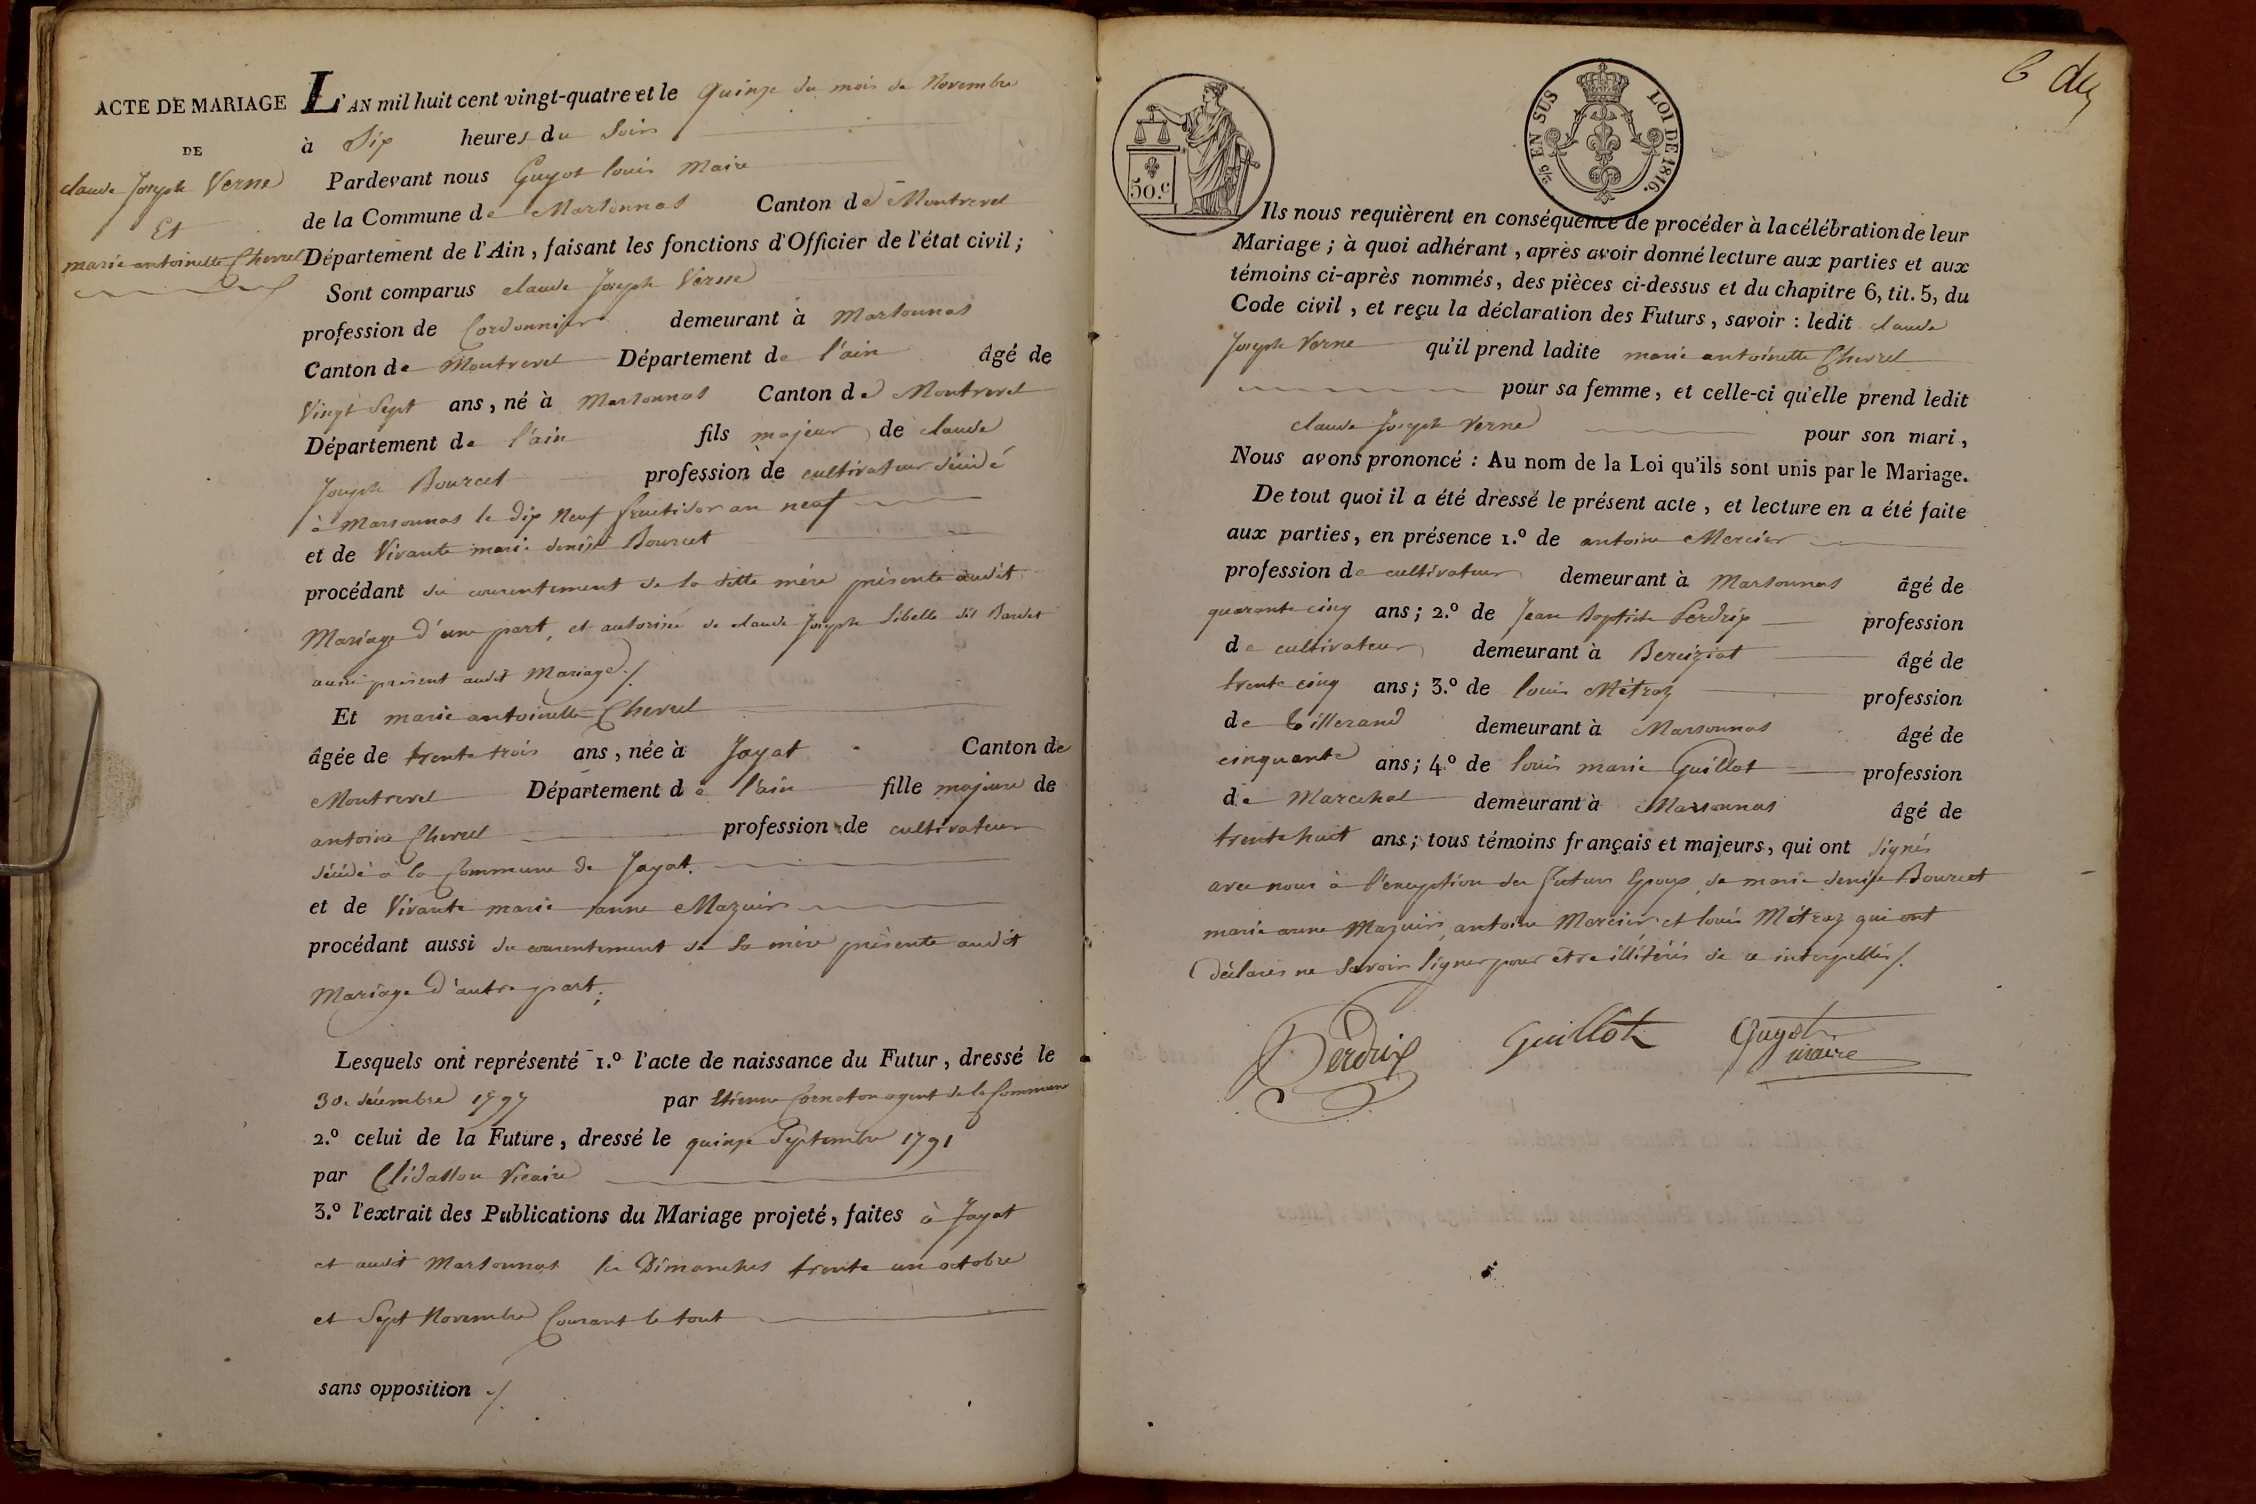 ACTE DE MARIAGE
DE
claude Joseph Verne
Et
marie antoinette Chevrel
L'AN mil huit cent vingt-quatre et le quinze du mois de Novembre
à Six heures du Soir
Pardevant nous Guyot louis Maire
de la Commune de Marsonnas Canton de Montrevel
Département de l'Ain, faisant les fonctions d'Officier de l'état civil;
Sont comparus claude Joseph Verne
profession de Cordonnier demeurant à Marsonnas
Canton de Montrevel Département de l'ain âgé de
Vingt Sept ans, né à Marsonnas Canton de Montrevel
Département de l'ain fils majeur de claude
Joseph Bourcet profession de cultivateur décédé
à Marsonnas le dix Neuf fructidor an neuf
et de Vivante marie denise Bourcet
procédant du consentement de la ditte mère présente audit
Mariage d'une part, et autorisé de claude Joseph Sibelle dit Bardet
aussi présent audit Mariage ./.
Et marie antoinette Chevrel
âgée de trente trois ans, née à Jayat Canton de
Montrevel Département de l'ain fille majeure de
antoine Chevrel profession de cultivateur
décédé à la Commune de Jayat.
et de Vivante marie anne Mazuir
procédant aussi du consentement de sa mère présente audit
Mariage d'autre part;
Lesquels ont représenté 1.º l'acte de naissance du Futur, dressé le
30. décembre 1797 par Etienne Cornaton agent de la Commune
2.º celui de la Future, dressé le quinze Septembre 1791
par Vicaire
3.º l'extrait des Publications du Mariage projeté, faites à Jayat
et audit Marsonnas les Dimanches trente un octobre
et Sept Novembre Courant le tout
sans opposition ./.
6
50.c
EN SUS LOI DE 1816.
Ils nous requièrent en conséquence de procéder à la célébration de leur
Mariage; à quoi adhérant, après avoir donné lecture aux parties et aux
témoins ci-après nommés, des pièces ci-dessus et du chapitre 6, tit. 5, du
Code civil, et reçu la déclaration des Futurs, savoir: ledit claude
Joseph Verne qu'il prend ladite marie antoinette Chevrel
pour sa femme, et celle-ci qu'elle prend ledit
claude Joseph Verne pour son mari,
Nous avons prononcé: Au nom de la Loi qu'ils sont unis par le Mariage.
De tout quoi il a été dressé le présent acte, et lecture en a été faite
aux parties, en présence 1.º de antoine Mercier
profession de cultivateur demeurant à Marsonnas âgé de
quarante cinq ans; 2.º de Jean Baptiste Perdrix profession
de cultivateur demeurant à Bereiziat âgé de
trente cinq ans; 3.º de louis Métraz profession
de tillerand demeurant à Marsonnas âgé de
cinquante ans; 4.º de louis marie Guillot profession
de Marechal demeurant à Marsonnas âgé de
trente huit ans; tous témoins français et majeurs, qui ont Signés
avec nous à l'exeption des Futurs Epoux, de marie denise Bourcet
marie anne Mazuir, antoine Mercier, et louis Métraz qui ont
déclarés ne Savoir Signer pour etre illitérés de ce interpellés ./.
Perdrix Guillot Guyot
maire